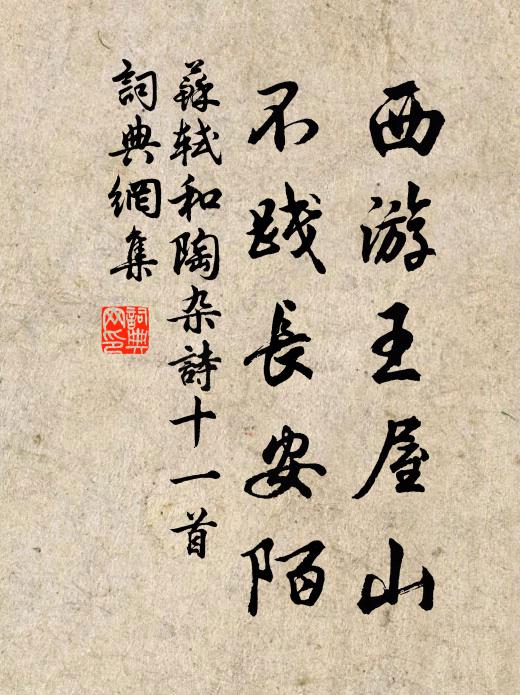 西游王屋山
不践長安陌
蘇軾和陶杂詩十一首
詞典網集
詞典网印